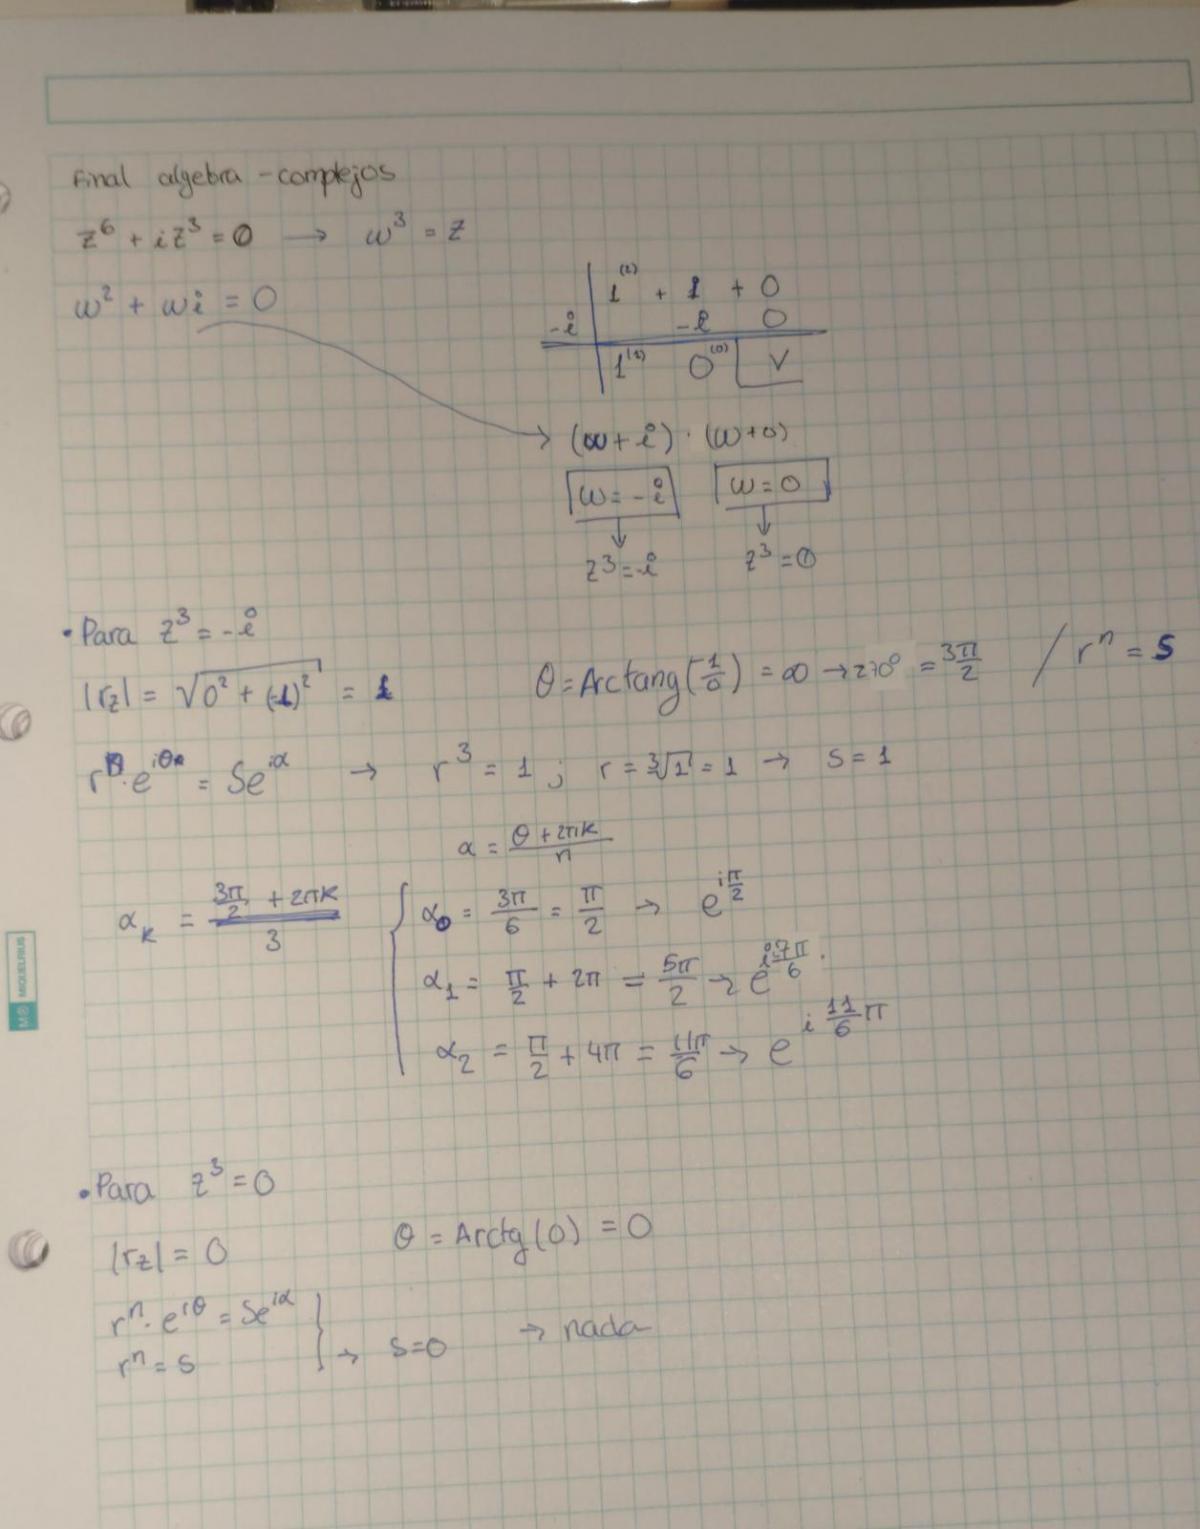 Final algebra - complejos
z⁶ + iz³ = 0 → w³ = z
w² + wi = 0
1⁽²⁾ + 1 + 0
-i -i 0
1⁽¹⁾ 0⁽⁰⁾ V
(w + i) · (w + 0)
w = -i w = 0
z³ = -i z³ = 0
• Para z³ = -i
|rz| = √(0² + (-1)²) = 1 θ = Arctang(1/0) = ∞ → 270° = 3π/2 / rⁿ = S
r³ · e^(iθ) = Se^(iα) → r³ = 1 ; r = ³√1 = 1 → s = 1
α = (θ + 2πk)/n
αₖ = (3π/2 + 2πk)/3
α₀ = 3π/6 = π/2 → e^(iπ/2)
α₁ = π/2 + 2π = 5π/2 → e^(i7π/6)
α₂ = π/2 + 4π = 11π/6 → e^(i 11/6 π)
• Para z³ = 0
|rz| = 0 θ = Arctg(0) = 0
rⁿ · e^(iθ) = Se^(iα)
rⁿ = s } → s = 0 → nada
M® MIQUELRIUS